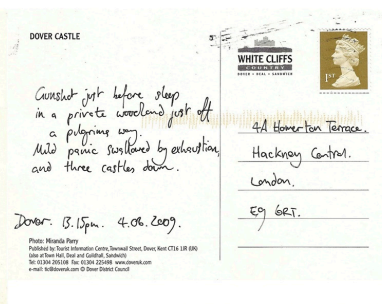 DOVER CASTLE
WHITE CLIFFS
COUNTRY
DOVER • DEAL • SANDWICH
1ST
Gunshot just before sleep
in a private woodland just off
a pilgrims way.
Mild panic swallowed by exhaustion,
and three castles down.
Dover. 13.15pm. 4.06.2009.
4A Homerton Terrace.
Hackney Central.
London.
E9 6RT.
Photo: Miranda Parry
Published by: Tourist Information Centre, Townwall Street, Dover, Kent CT16 1JR (UK)
(also at Town Hall, Deal and Guildhall, Sandwich)
Tel: 01304 205108 Fax: 01304 225498 www.doveruk.com
e-mail: tic@doveruk.com © Dover District Council